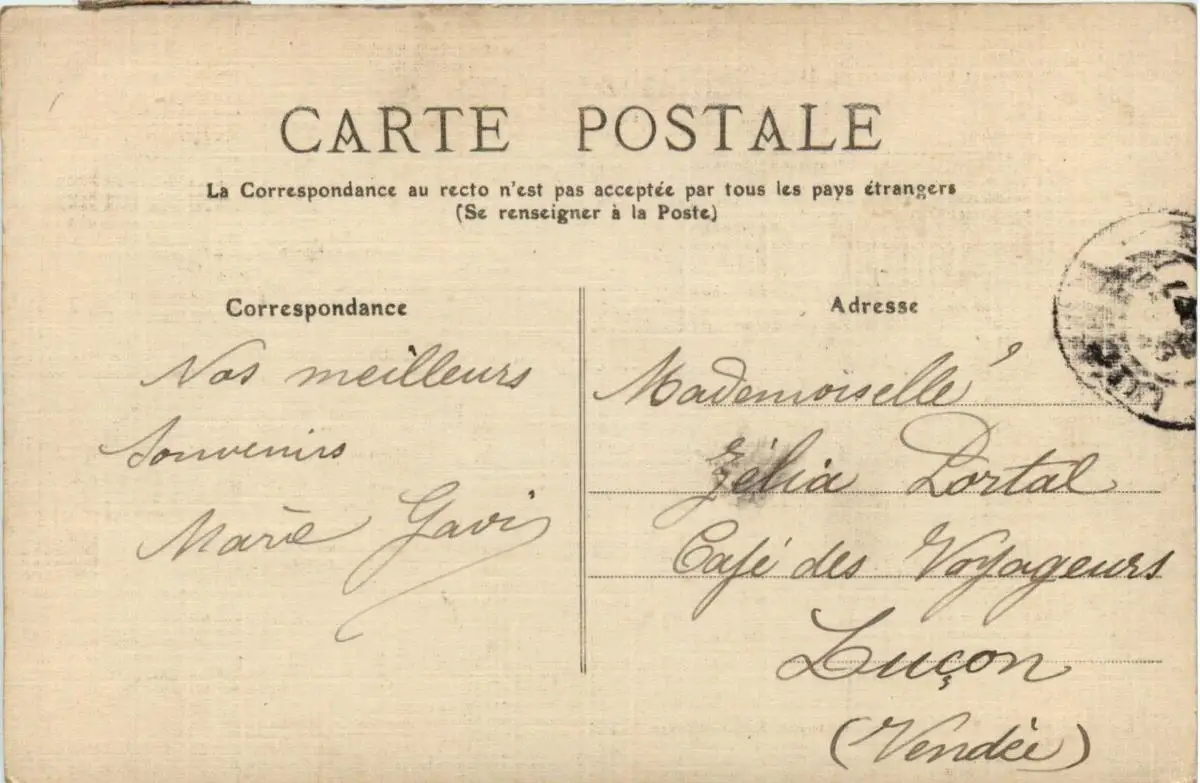 CARTE POSTALE
La Correspondance au recto n'est pas acceptée par tous les pays étrangers
(Se renseigner à la Poste)
Correspondance
Nos meilleurs
Souvenirs
Marie Gavi
Adresse
Mademoiselle
Zélia Portal
Café des Voyageurs
Luçon
(Vendée)